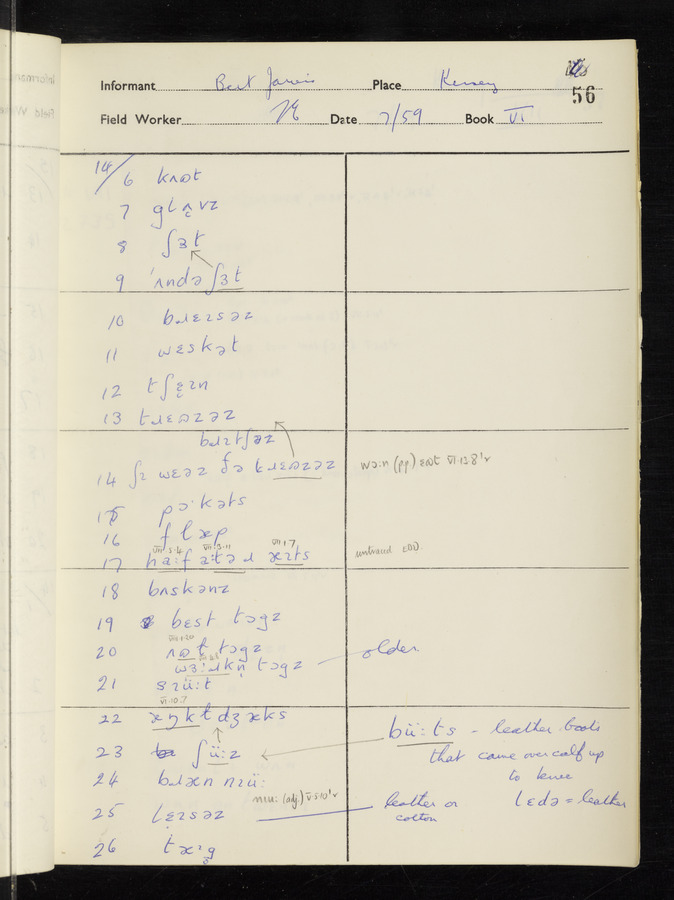 Informant Bert Jarvis Place Kersey 56
Field Worker Date 7/59 Book VI
14/ 6 kʌɒt
7 glʌvz
8 ʃɜt
9 ˈʌndə ʃɜt
10 bɹɛɪsəz
11 wɛskət
12 tʃɛɪn
13 tɹɛɒzəz
bɹɪtʃəz
14 ʃɪ wɛəz ðə tɹɛɒzəz wɔ:n (pp) ɛɒt VI.13.8'v
15 pɔˑkəts
16 flæp
VII.5.4. VII.3.11 VII.1.7
17 ha:f a:tə ɹ æɪts untraced EDD.
18 bʌskənz
19 bɛst tɔgz
20 ʌɒt tɔgz
wɜ:ɹkn̩ tɔgz older
21 sɪü:t
VI.10.7
22 æŋktdʒæks
23 ʃü:z bü:ts - leather boots
that came over calf up
to knee
24 bɹæn nɪü:
nɪu: (adj.) V.5.10'v
25 lɛɪsəz leather or lɛdə = leather
cotton
26 ɹæˑg